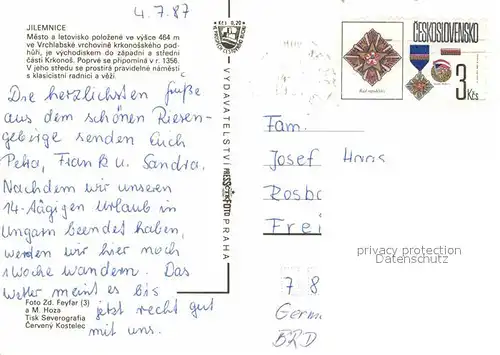 4.7.87
JILEMNICE
Město a letovisko položené ve výšce 464 m
ve Vrchlabské vrchovině krkonošského pod-
hůří, je východiskem do západní a střední
části Krkonoš. Poprvé se připomíná v r. 1356.
V jeho středu se prostírá pravidelné náměstí
s klasicistní radnicí a věží.
Die herzlichsten Grüße
aus dem schönen Riesen-
gebirge senden Euch
Petra, Frank u. Sandra.
Nachdem wir unseren
14-tägigen Urlaub in
Ungarn beendet haben,
werden wir hier noch
1 Woche wandern. Das
Wetter meint es bis
jetzt recht gut
mit uns.
Foto Zd. Feyfar (3)
a M. Hoza
Tisk Severografia
Červený Kostelec
Kčs 0,20
VYDAVATELSTVÍ PRESSFOTO PRAHA
ČESKOSLOVENSKO
3 Kčs
Fam.
Josef Haas
Rosbo
Frei
privacy protection
Datenschutz
7 8
Germ
BRD